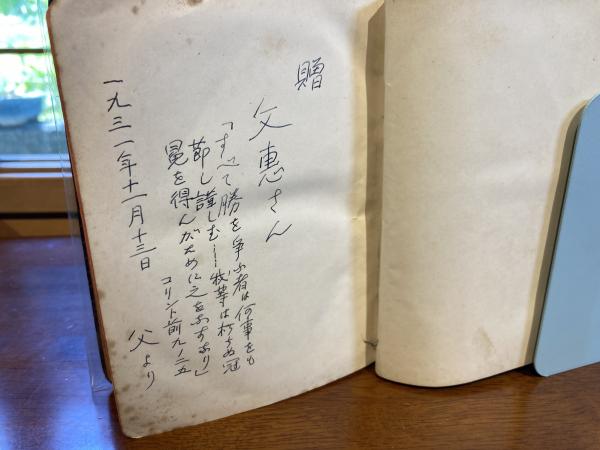 贈
文惠さん
「すべて勝を争ふ者は何事をも
節し謹しむ……我等は朽ちぬ冠
冕を得んがために之をなすなり」
コリント前九ノ二五
一九三一年十一月十三日
父より